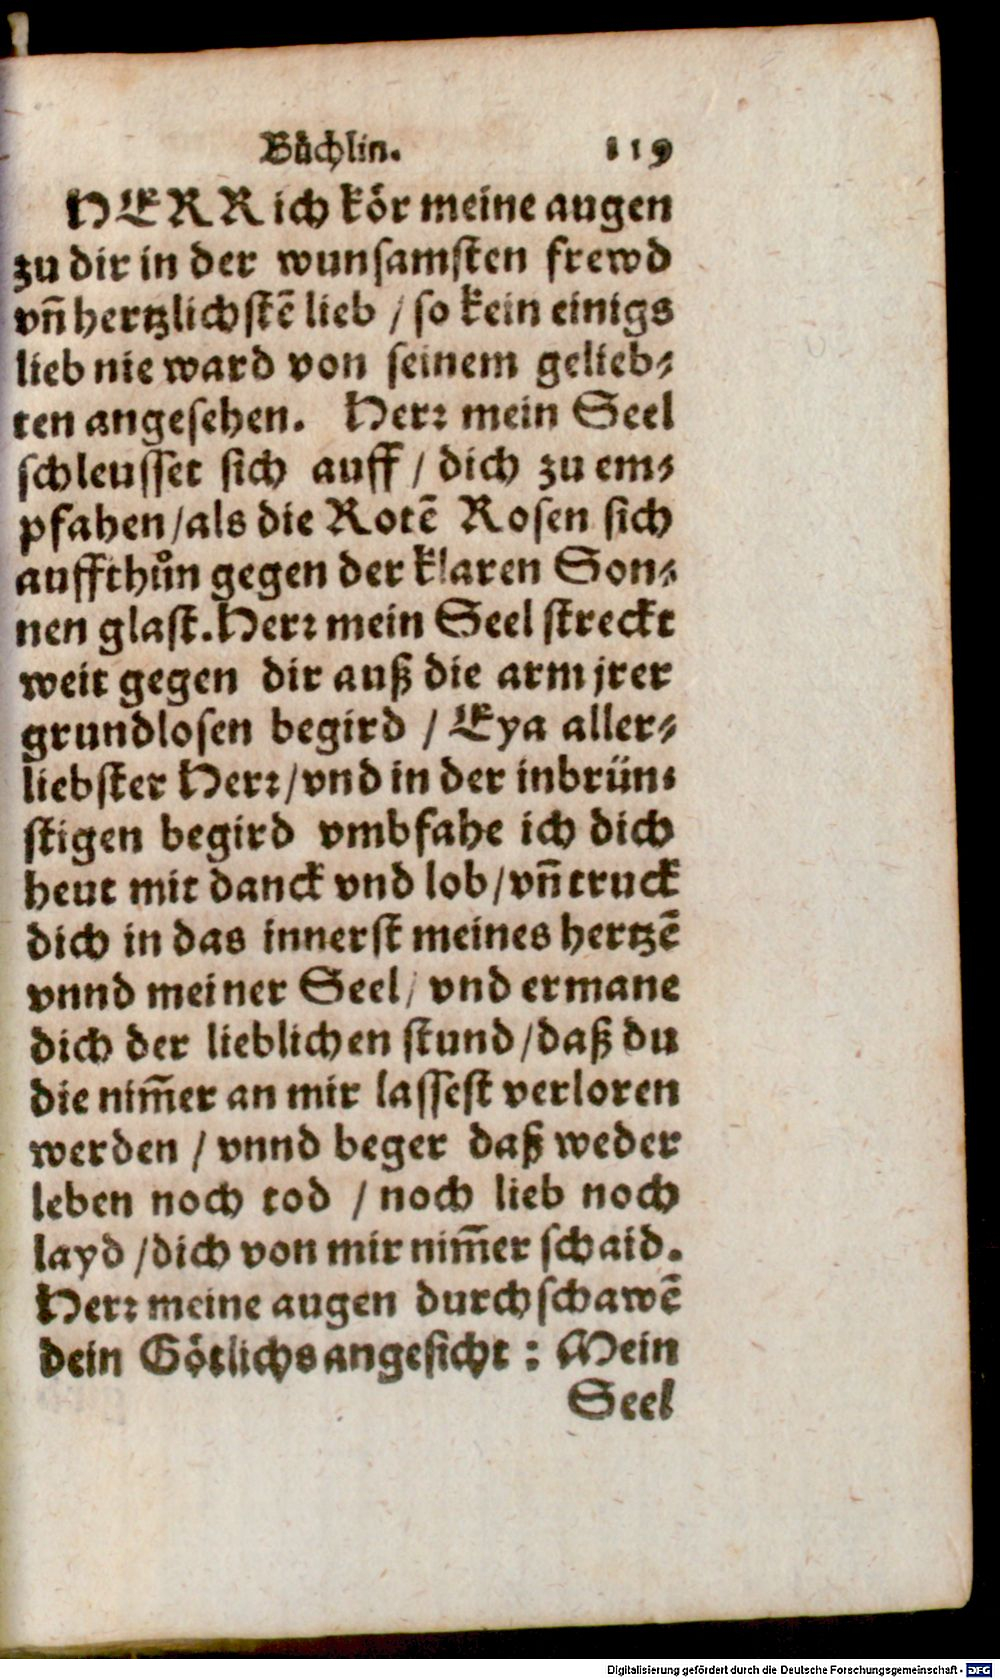 Bůchlin. 119
HERR ich kör meine augen
zu dir in der wunsamsten frewd
vñ hertzlichstē lieb / so kein einigs
lieb nie ward von seinem gelieb⸗
ten angesehen. Herꝛ mein Seel
schleusset sich auff / dich zu em⸗
pfahen / als die Rotē Rosen sich
auffthůn gegen der klaren Son⸗
nen glast. Herꝛ mein Seel streckt
weit gegen dir auß die arm jrer
grundlosen begird / Eya aller⸗
liebster Herꝛ / vnd in der inbrün⸗
stigen begird vmbfahe ich dich
heut mit danck vnd lob / vñ truck
dich in das innerst meines hertzē
vnnd meiner Seel / vnd ermane
dich der lieblichen stund / daß du
die nim̄er an mir lassest verloren
werden / vnnd beger daß weder
leben noch tod / noch lieb noch
layd / dich von mir nim̄er schaid.
Herꝛ meine augen durchschawē
dein Götlichs angesicht : Mein
Seel
Digitalisierung gefördert durch die Deutsche Forschungsgemeinschaft - DFG